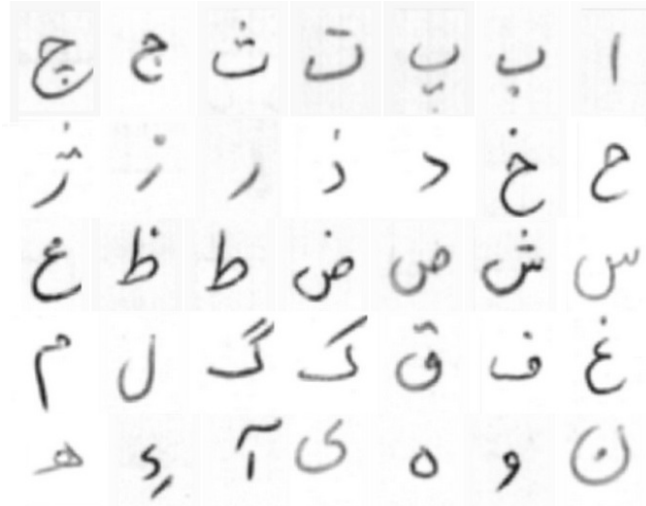 ا ب پ ت ث ج چ
ح خ د ذ ر ز ژ
س ش ص ض ط ظ ع
غ ف ق ک گ ل م
ن و ه ی آ هـ